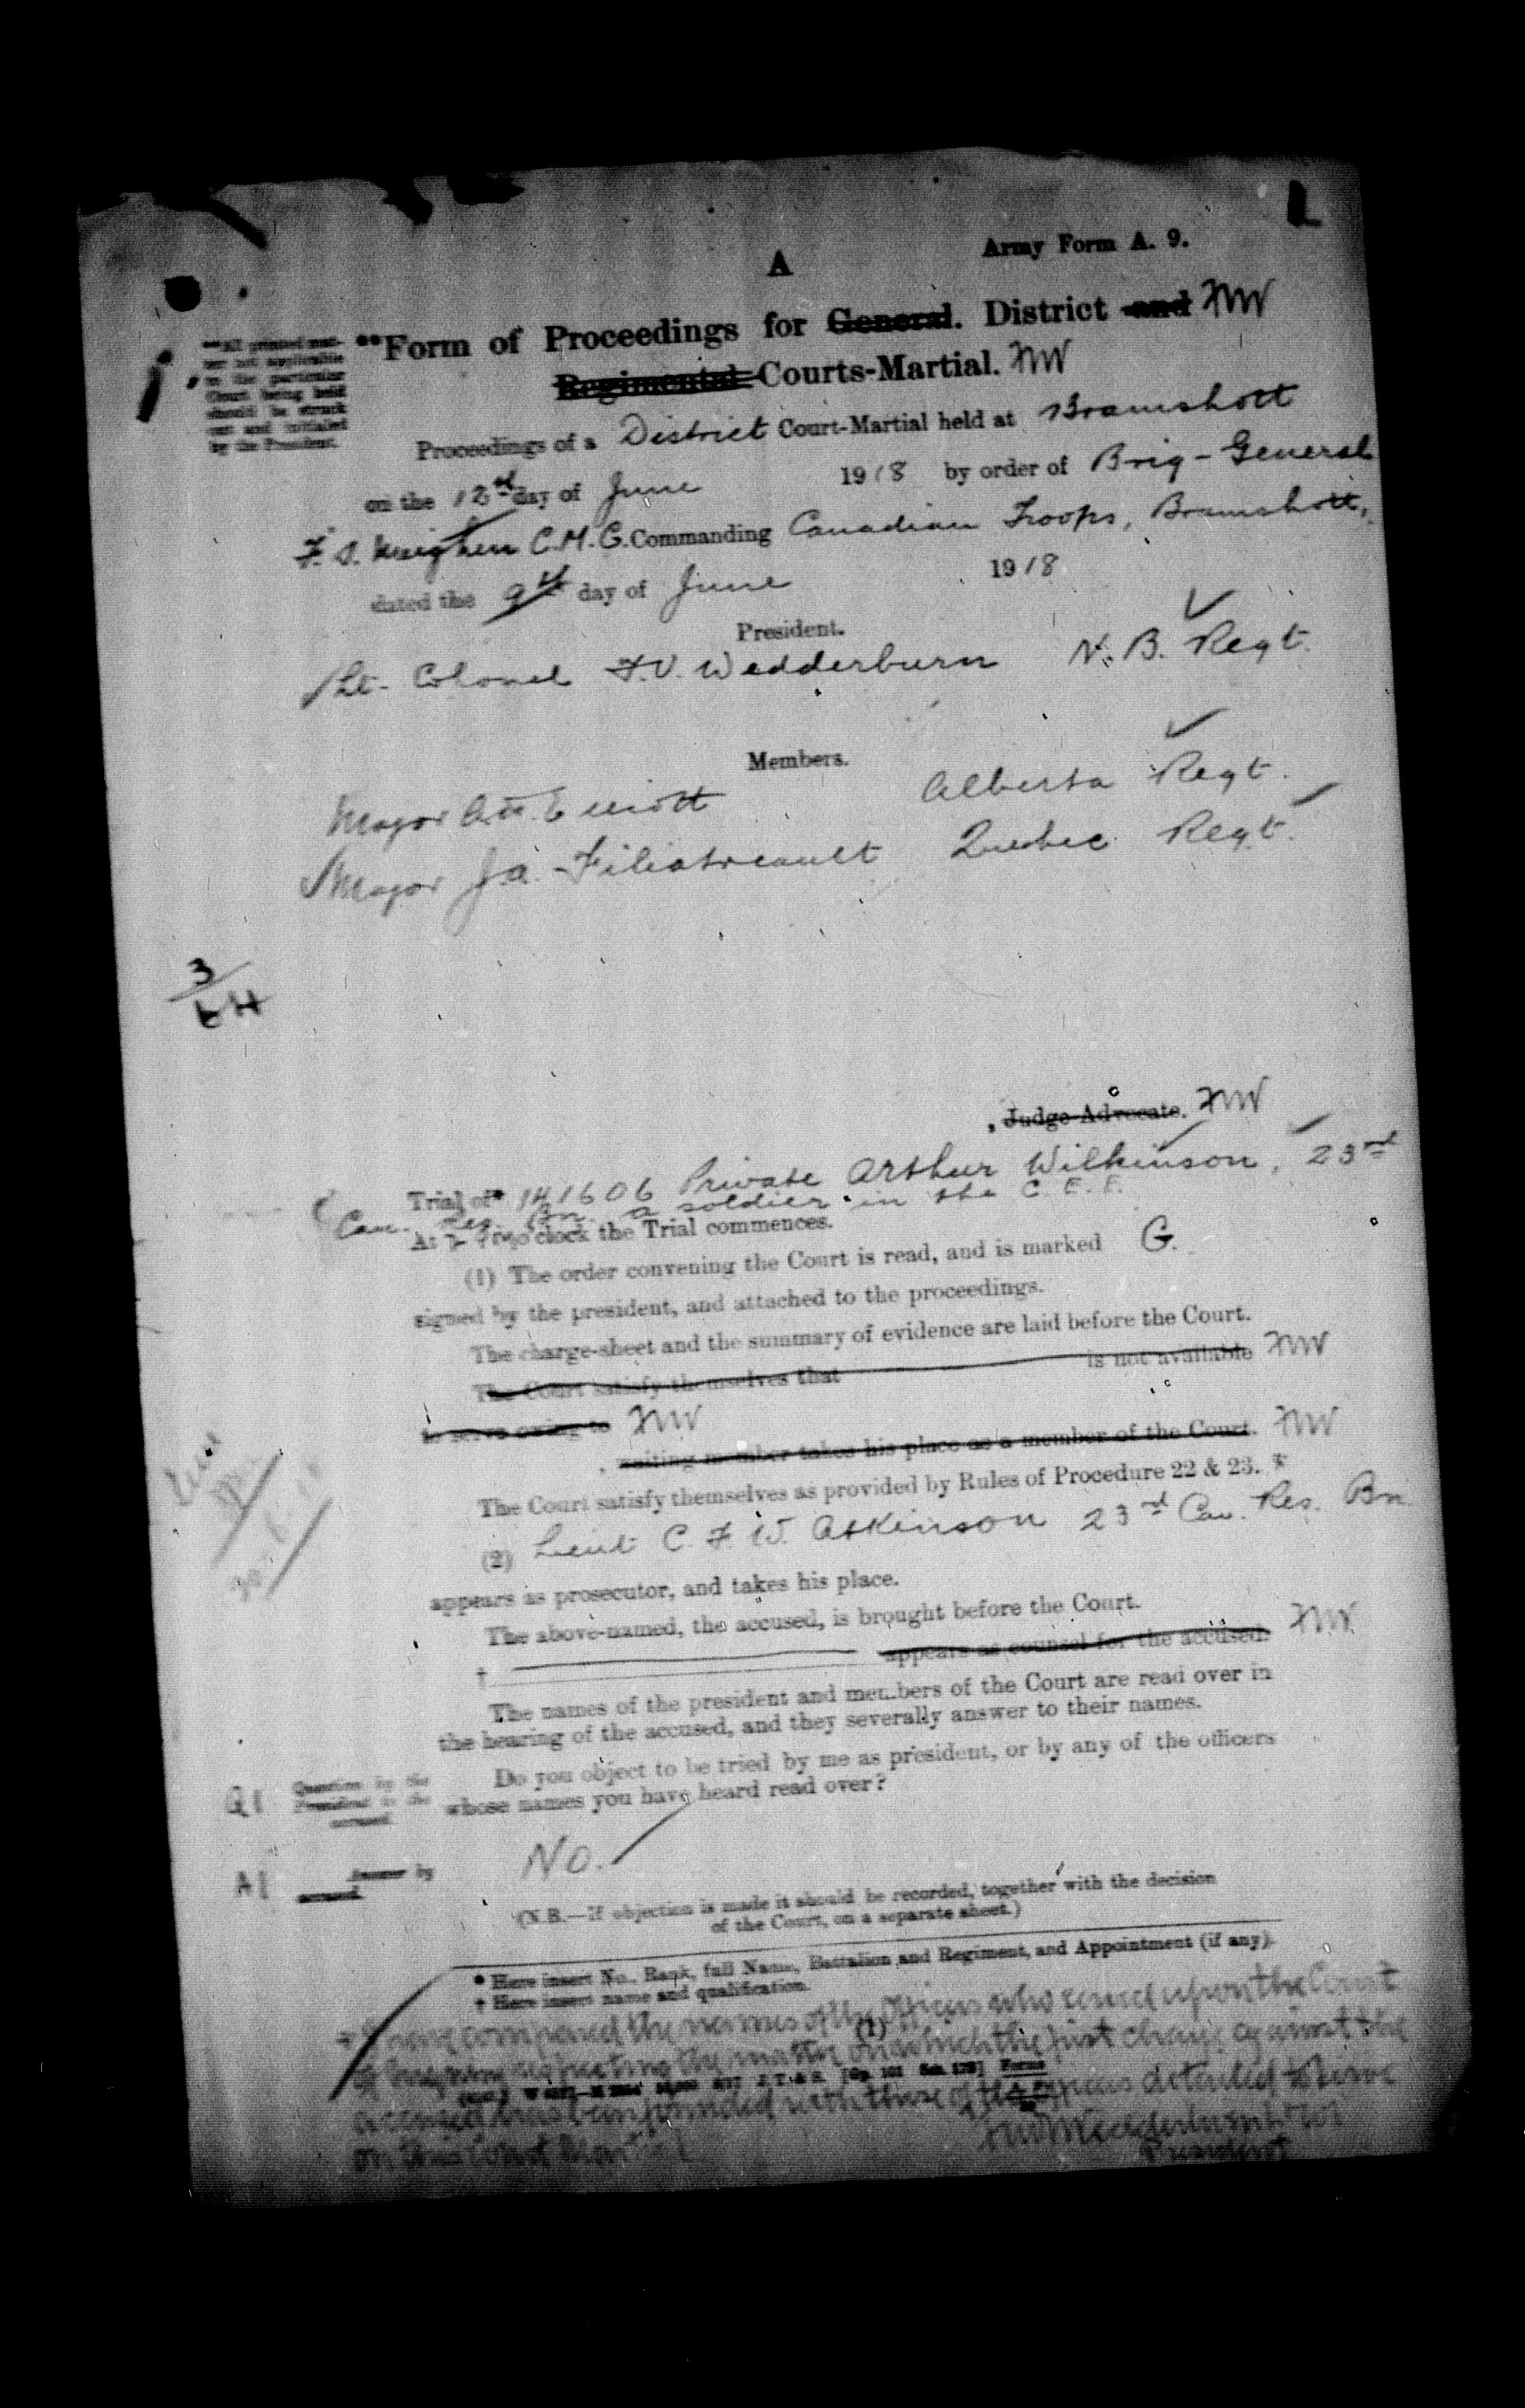 Army Form A. 9.
A
**Form of Proceedings for General. District and FVW
Regimental Courts-Martial. FVW
**All printed matter not applicable
to the particular
Court being held
should be struck
out and initialed
by the President.
Proceedings of a District Court-Martial held at Bramshott
on the day of June 1918 by order of Brig-General
F. S. Meighen C.M.G. Commanding Canadian Troops, Bramshott,
dated the 9th day of June 1918
President.
Lt-Colonel F.V. Wedderburn N.B. Regt.
Members.
Major Elliott Alberta Regt.
Major J.A. Filiatreault Quebec Regt.
3
, Judge-Advocate. FVW
Trial of* 141606 Private Arthur Wilkinson, 23rd
Can. Res. Bn. a soldier in the C.E.F.
At o'clock the Trial commences.
(1) The order convening the Court is read, and is marked G.
signed by the president, and attached to the proceedings.
The charge-sheet and the summary of evidence are laid before the Court.
The Court satisfy themselves that is not available FVW
to serve owing to FVW
, waiting member takes his place as a member of the Court. FVW
The Court satisfy themselves as provided by Rules of Procedure 22 & 23. *
(2) Lieut C. F. W. Atkinson 23rd Can. Res. Bn
appears as prosecutor, and takes his place.
The above-named, the accused, is brought before the Court.
† appears as counsel for the accused. FVW
The names of the president and members of the Court are read over in
the hearing of the accused, and they severally answer to their names.
Q1 Question by the
President to the
accused.
Do you object to be tried by me as president, or by any of the officers
whose names you have heard read over?
A1 Answer by
accused.
No.
(N.B.—If objection is made it should be recorded, together with the decision
of the Court, on a separate sheet.)
* Here insert No., Rank, full Name, Battalion and Regiment, and Appointment (if any).
† Here insert name and qualification.
* I have compared the names of the Officers who served upon the Court
(1)
of Inquiry respecting the matter on which the first charge against the
Forms
accused has been founded with those of the officers detailed to serve
on this Court Martial
FVWedderburn Lt Col
President